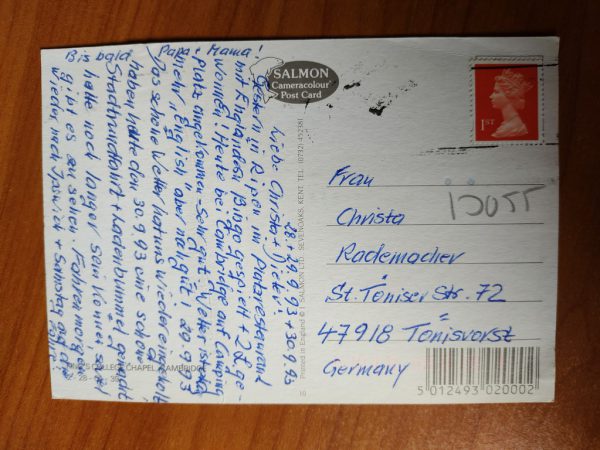 SALMON
Cameracolour
Post Card
28. + 29.9.93 + 30.9.93
Liebe Christa + Dieter!
Gestern in Ripon im Platzrestaurant
mit Engländern Bingo gespielt + 2 £ ge-
wonnen. Heute bei Cambridge auf Camping
platz angekommen - sehr gut, Wetter ist
mehr "Englisch" aber 29.9.93
Das schöne Wetter hat uns wieder eingeholt
haben heute den 30.9.93 eine schöne
Stadtrundfahrt + Ladenbummel gemacht
hätte noch länger sein können, so viel
gibt es zu sehen. Fahren morgen
wieder nach Ipswich + Samstag auf die
Fähre!
Bis bald Papa + Mama!
KING'S COLLEGE CHAPEL, CAMBRIDGE
Printed in England © J. SALMON LTD. SEVENOAKS, KENT. TEL. (0732) 452381
1ST
Frau
Christa
Rademacher
St. Töniser Str. 72
47918 Tönisvorst
Germany
5 012493 020002